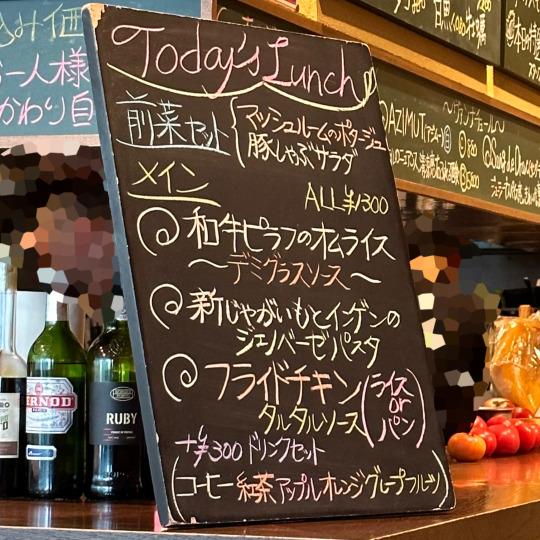 Today's Lunch
前菜セット
マッシュルームのポタージュ
豚しゃぶサラダ
メイン
ALL ¥1300
和牛ピラフのオムライス
〜デミグラスソース〜
新じゃがいもとインゲンの
ジェノベーゼパスタ
フライドチキン
タルタルソース
(ライス
or
パン)
+¥300 ドリンクセット
(コーヒー 紅茶 アップル オレンジ グレープフルーツ)
込み価
一人様
かわり自
AZIMUT
PERNOD
RUBY